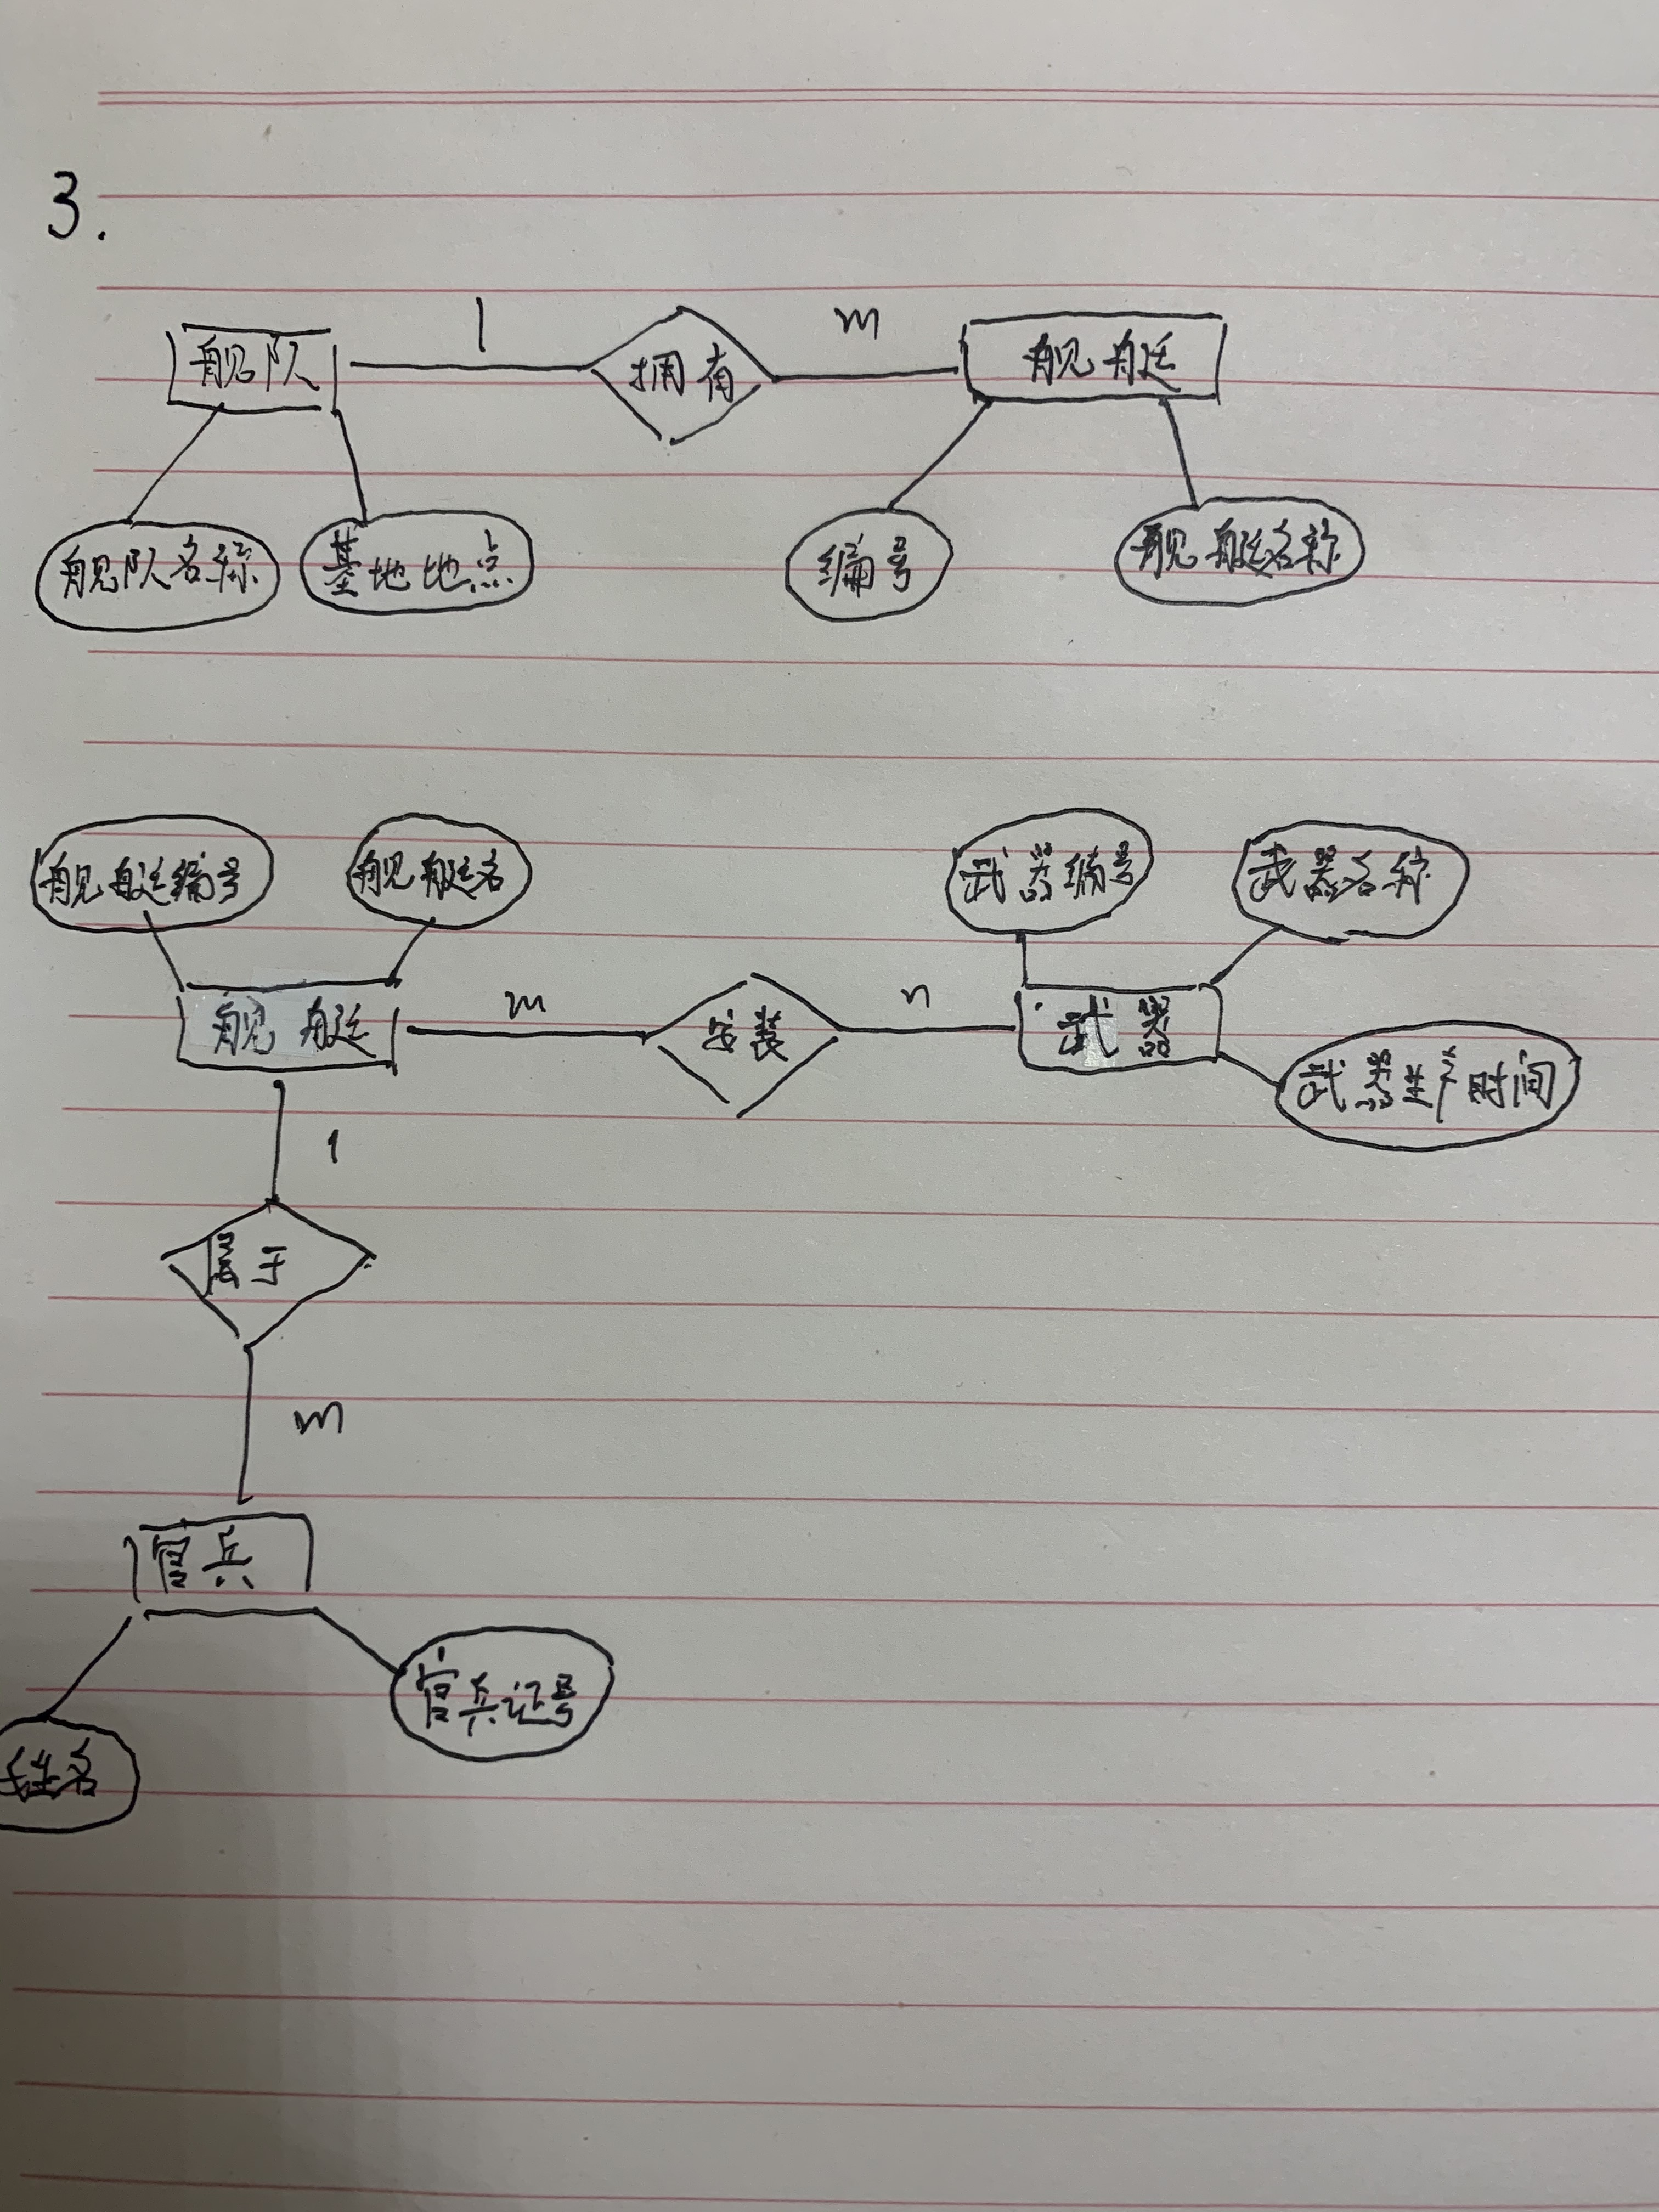 3.
1 m
舰队 拥有 舰艇
舰队名称 基地地点 编号 舰艇名称
舰艇编号 舰艇名 武器编号 武器名称
m n
舰艇 安装 武器
武器生产时间
1
属于
m
官兵
官兵证号
姓名